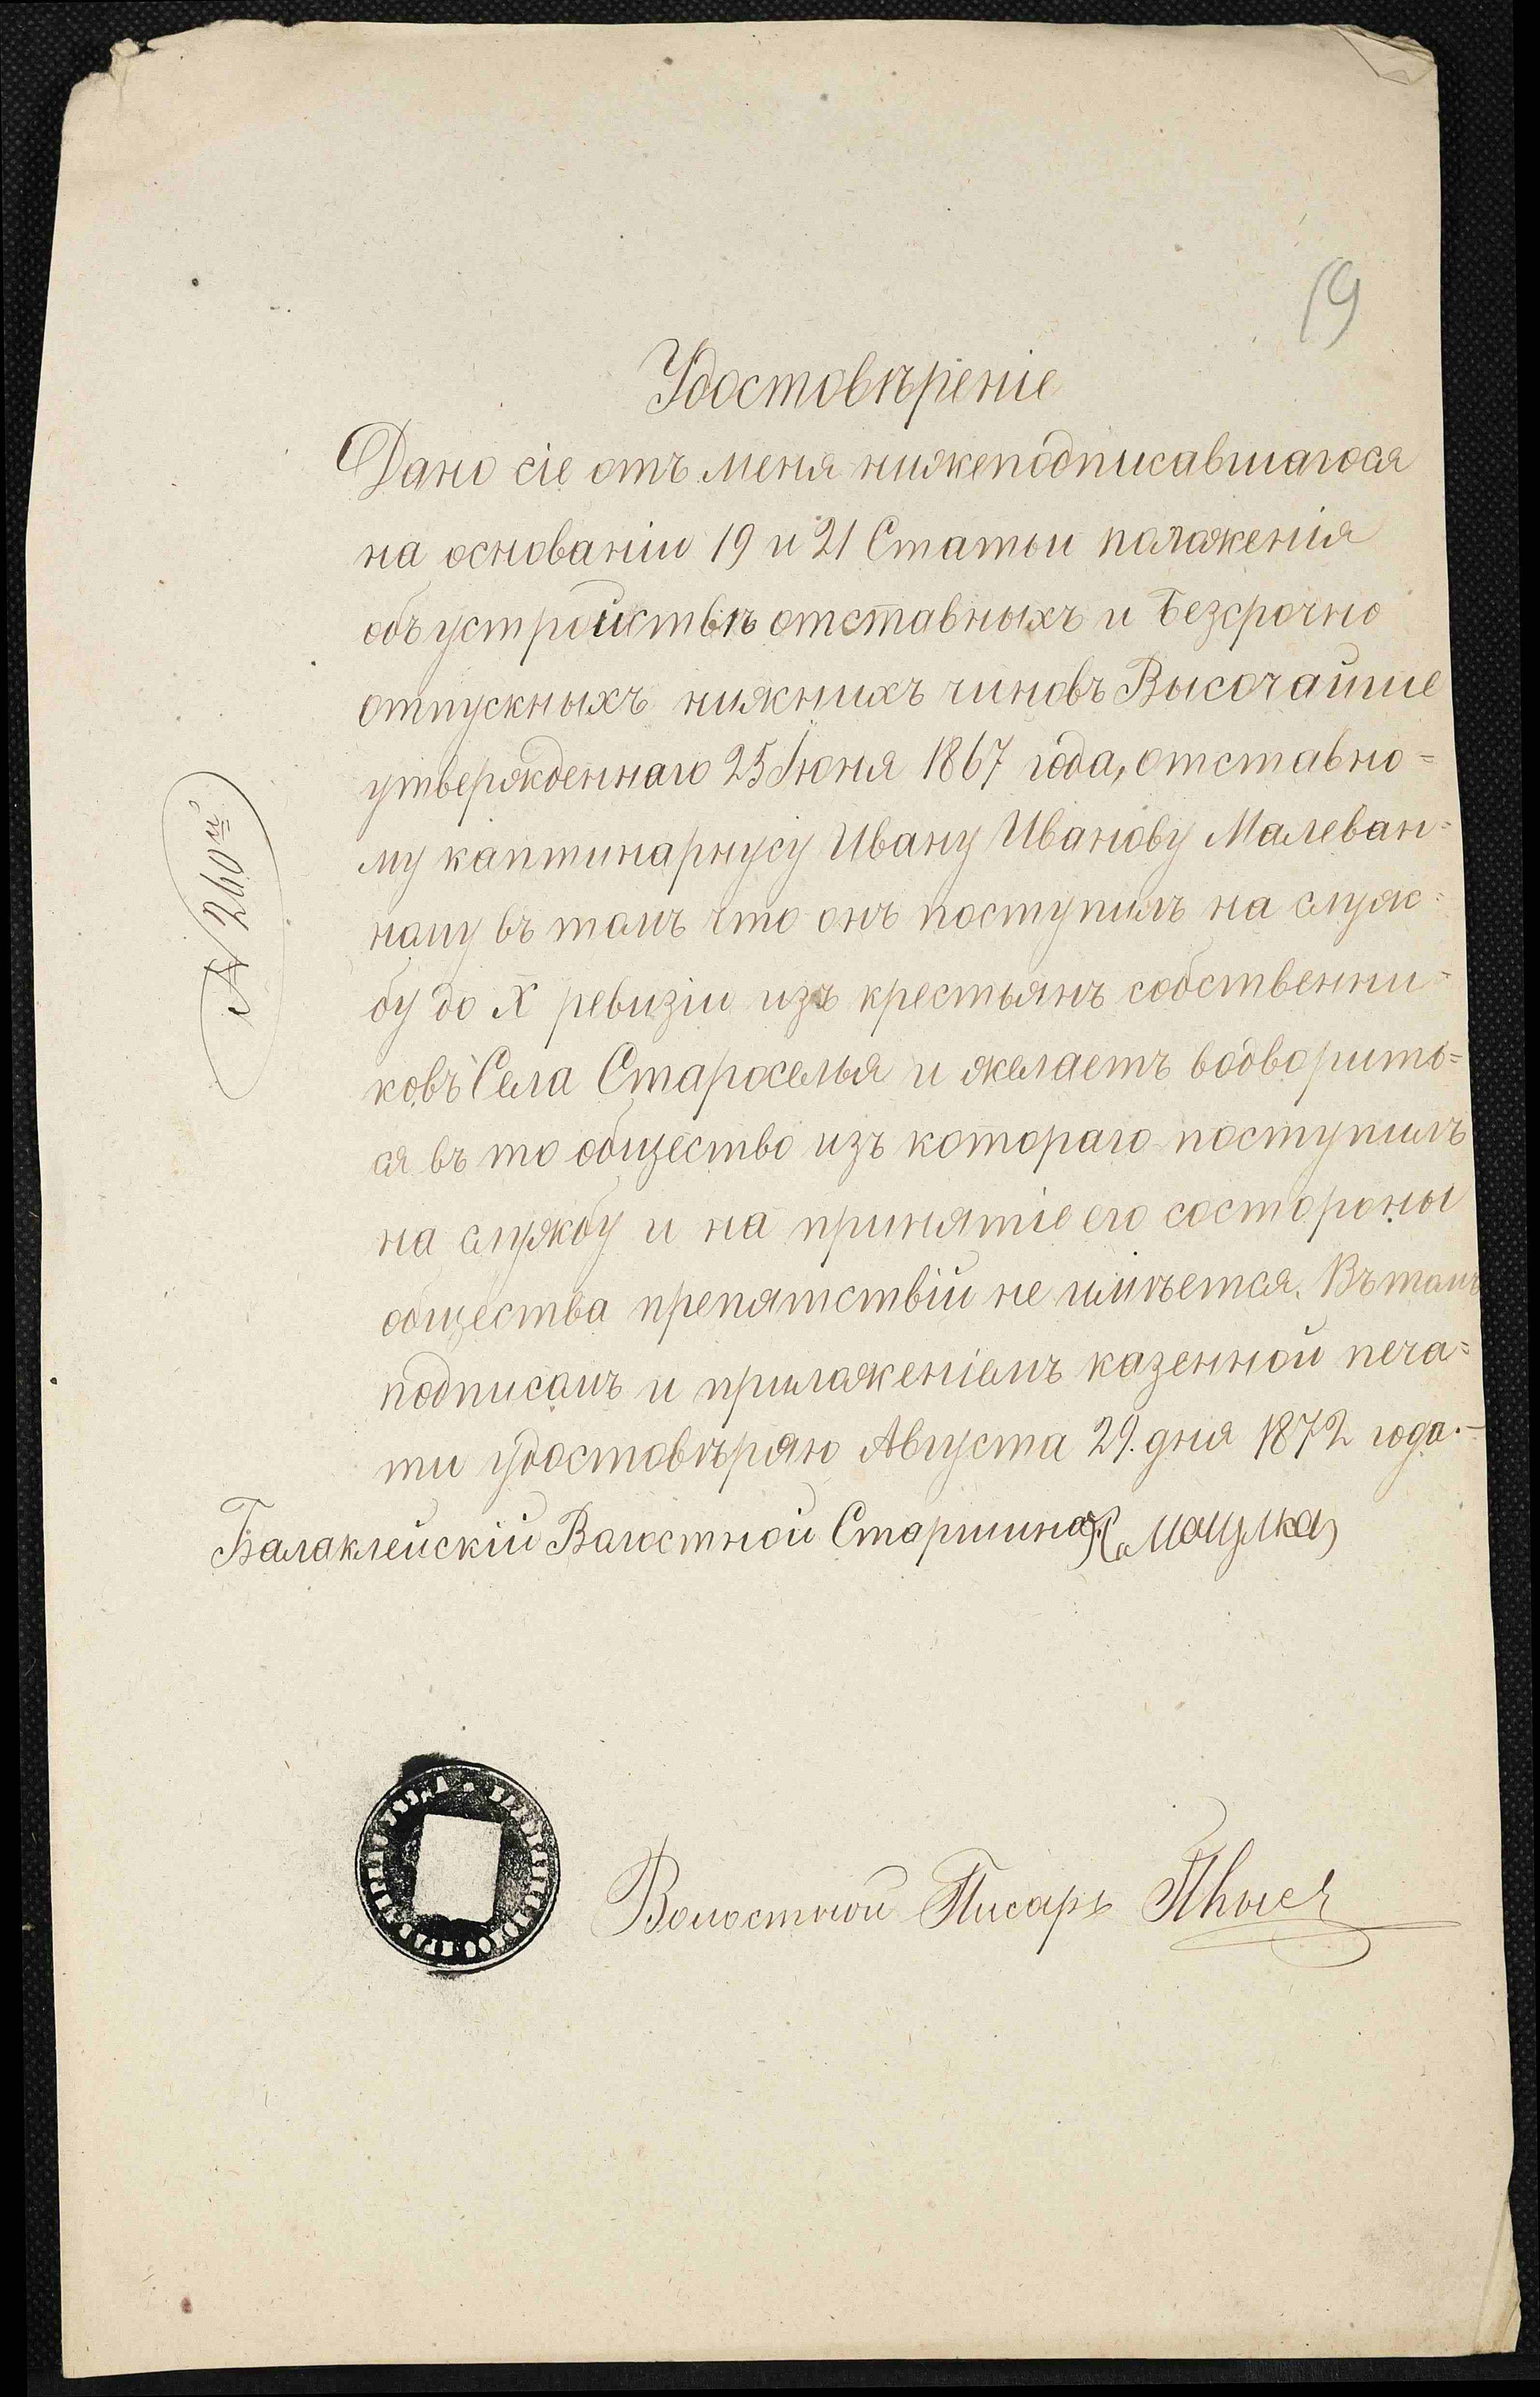 19
Удостовѣреніе
Дано сіе отъ меня нижеподписавшагося
на основаніи 19 и 21 Статьи положенія
объ устройствѣ отставныхъ и безсрочно
отпускныхъ нижнихъ чиновъ Высочайше
утвержденнаго 25 Іюня 1867 года, отставно=
му каптинарнусу Ивану Иванову Малеван=
ному въ томъ что онъ поступилъ на служ=
бу до X ревизіи изъ крестьянъ собственни=
ковъ Села Староселья и желаетъ водворить=
ся въ то общество изъ котораго поступилъ
на службу и на принятіе его состороны
общества препятствій не имѣется. Въ томъ
подписомъ и приложеніемъ казенной печа=
ти удостовѣряю Августа 29. дня 1872 года.-
Балаклейскій Волостной Старшина
Волостной Писарь
№ 260й